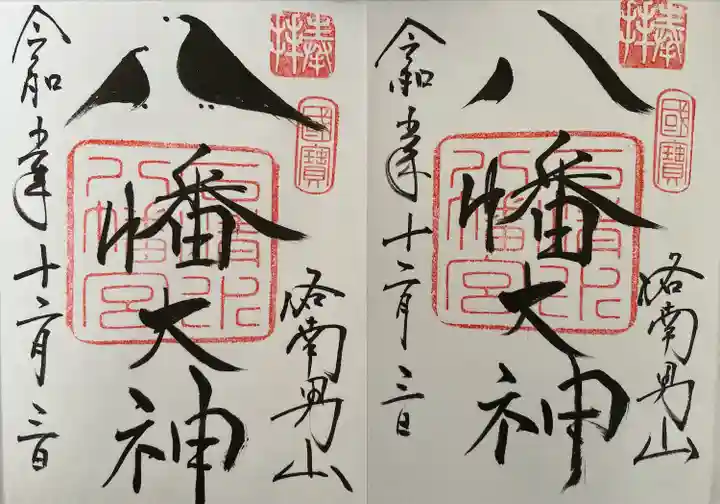 奉拝
國寶
洛南男山
八幡大神
石清水
八幡宮
令和 年十二月三日
奉拝
國寶
洛南男山
八幡大神
石清水
八幡宮
令和 年十二月三日